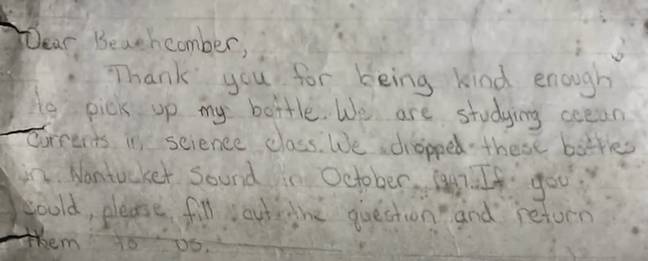 Dear Beachcomber,
Thank you for being kind enough
to pick up my bottle. We are studying ocean
currents in science class. We dropped these bottles
in Nantucket Sound in October 1997. If you
could, please fill out the question and return
them to us.